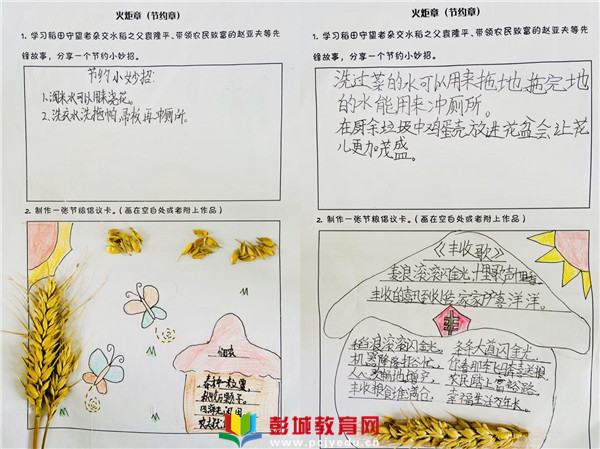 火炬章（节约章）
1. 学习稻田守望者杂交水稻之父袁隆平、带领农民致富的赵亚夫等先
锋故事，分享一个节约小妙招。
节约小妙招:
1.淘米水可以用来浇花。
2.洗衣水洗拖帕,吊板再冲厕所。
2. 制作一张节粮倡议卡。（画在空白处或者附上作品）
春种一粒粟,
火炬章（节约章）
1. 学习稻田守望者杂交水稻之父袁隆平、带领农民致富的赵亚夫等先
锋故事，分享一个节约小妙招。
洗过菜的水可以用来拖地,拖完地
的水能用来冲厕所。
在厨余垃圾中鸡蛋壳放进花盆会让花
儿更加茂盛。
2. 制作一张节粮倡议卡。（画在空白处或者附上作品）
《丰收歌》
麦浪滚滚闪金光,十里歌声十里
丰收的喜讯到处传家家户户喜洋洋。
丰
稻浪滚滚闪金光。
机器隆隆打谷忙。
丰收粮食堆满仓。
农民踏上富裕路。
幸福生活万年长。
彭城教育网
www.pcjyedu.cn